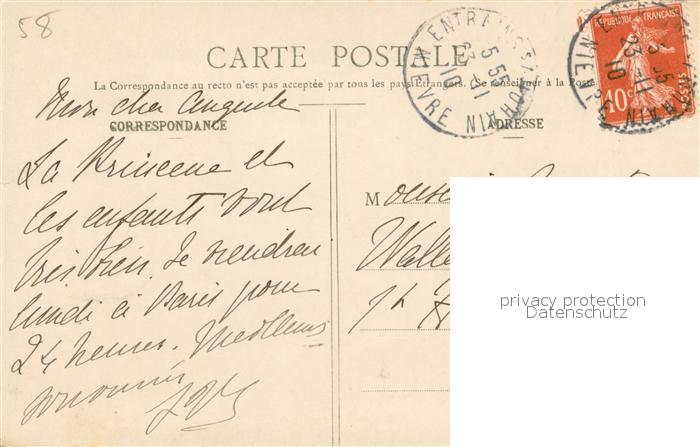 58
CARTE POSTALE
La Correspondance au recto n'est pas acceptée par tous les pays Étrangers. Se renseigner à la Poste
Mon cher Auguste
CORRESPONDANCE
La Princesse et
les enfants vont
très bien. Je viendrai
lundi à Paris pour
24 heures. Meilleurs
ADRESSE
Monsieur
Walle
ENTRAINS S/ NOHAIN
5 55
23 - 11
10
NIEVRE
REPUBLIQUE FRANÇAISE
10c
POSTES
privacy protection
Datenschutz